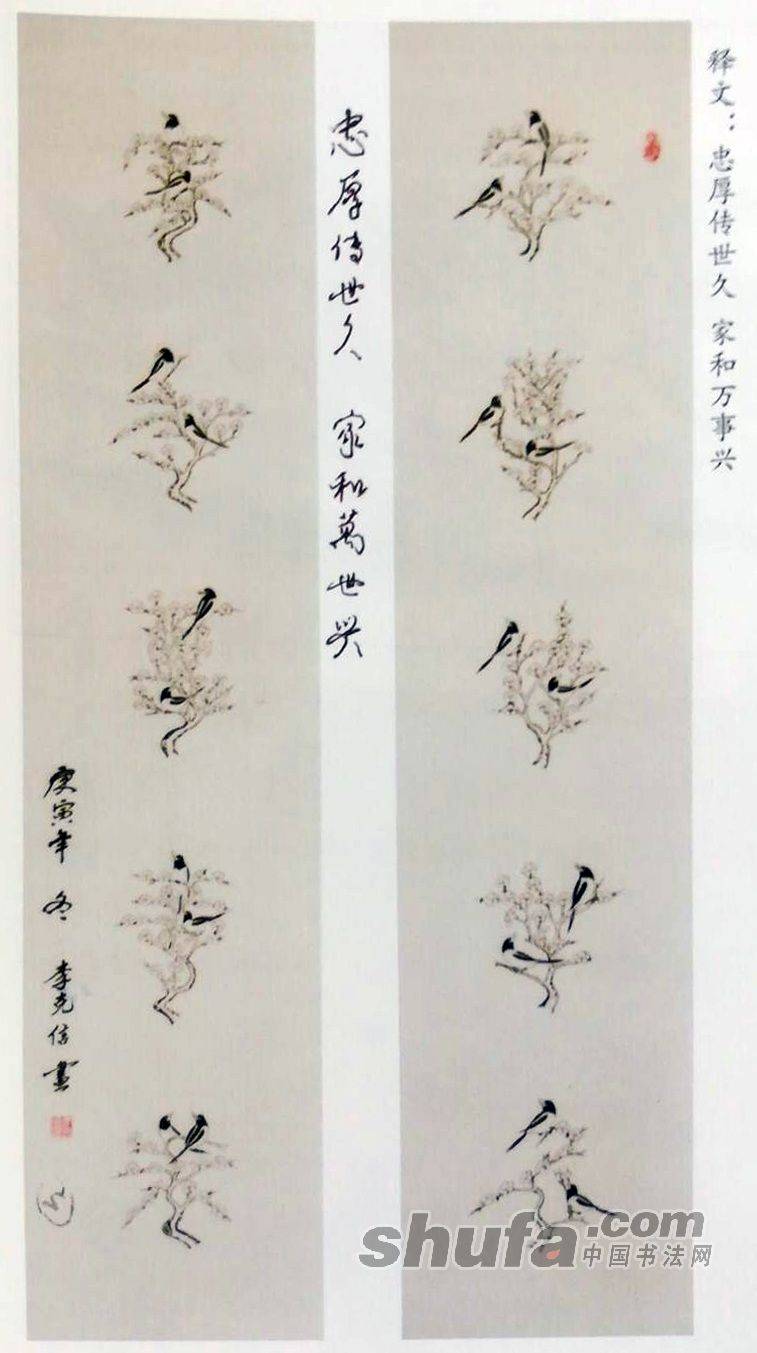 释文：忠厚传世久 家和万事兴
忠厚傳世久 家和萬世兴
庚寅年 冬 李克信畫
shufa.com
中国书法网